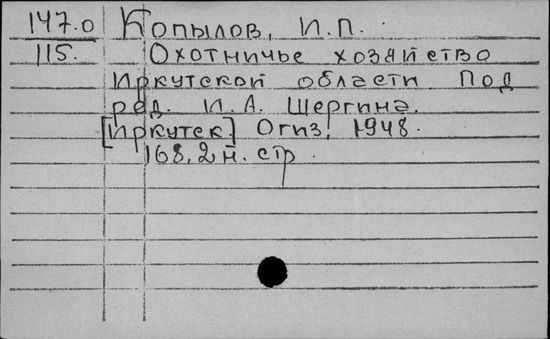 147.0 Копылов, И.П.
115. Охотничье хозяйство
Иркутской области. Под
ред. И.А. Шергина.
[Иркутск] Огиз, 1948.
168, 2 н. стр.